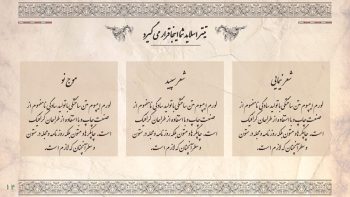 تیتر اسلاید شما اینجا قرار می گیرد
شعر نیمایی
لورم ایپسوم متن ساختگی با تولید سادگی نامفهوم از
صنعت چاپ و با استفاده از طراحان گرافیک
است. چاپگرها و متون بلکه روزنامه و مجله در ستون
و سطرآنچنان که لازم است.
شعر سپید
لورم ایپسوم متن ساختگی با تولید سادگی نامفهوم از
صنعت چاپ و با استفاده از طراحان گرافیک
است. چاپگرها و متون بلکه روزنامه و مجله در ستون
و سطرآنچنان که لازم است.
موج نو
لورم ایپسوم متن ساختگی با تولید سادگی نامفهوم از
صنعت چاپ و با استفاده از طراحان گرافیک
است. چاپگرها و متون بلکه روزنامه و مجله در ستون
و سطرآنچنان که لازم است.